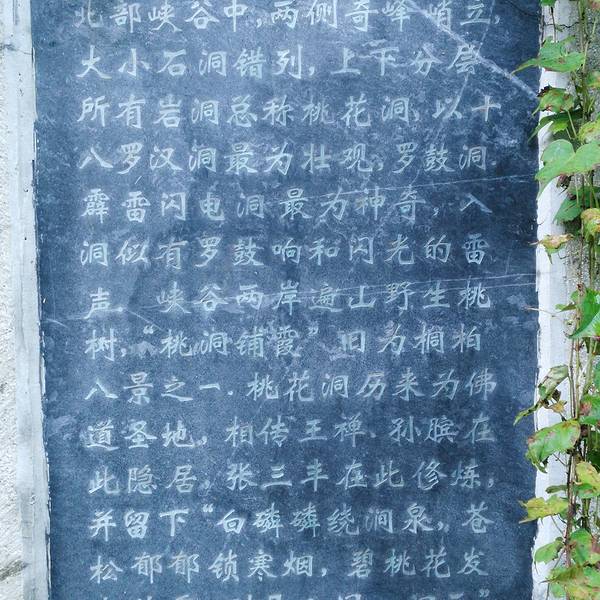 北部峡谷中,两侧奇峰峭立,
大小石洞错列,上下分层
所有岩洞总称桃花洞,以十
八罗汉洞最为壮观,罗鼓洞.
霹雷闪电洞最为神奇,入
洞似有罗鼓响和闪光的雷
声. 峡谷两岸遍山野生桃
树,“桃洞铺霞”旧为桐柏
八景之一.桃花洞历来为佛
道圣地,相传王禅.孙膑在
此隐居,张三丰在此修炼,
并留下“白磷磷绕涧泉,苍
松郁郁锁寒烟,碧桃花发